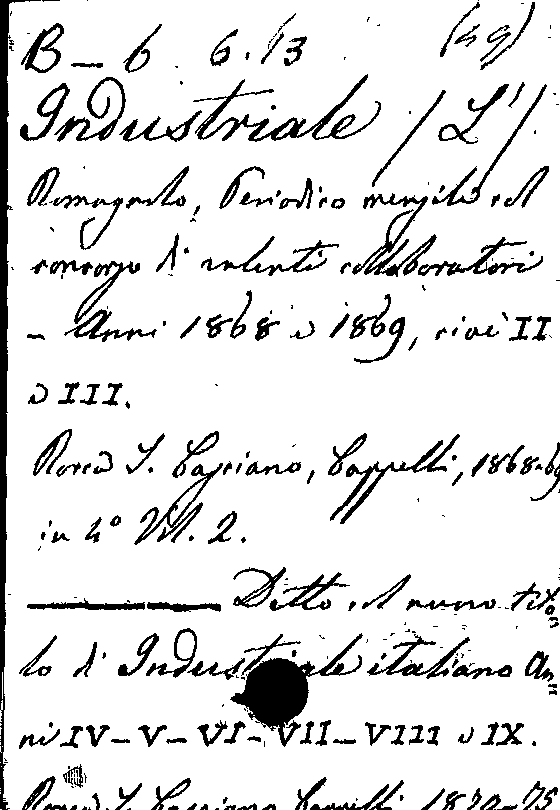 B-6. 6.13 (49)
Industriale (L')
Romagnolo, Periodico mensile col
concorso di valenti collaboratori
- Anni 1868 e 1869, cioè II
e III.
Rocca S. Casciano, Cappelli, 1868-69
in 4° Vol. 2.
Ditto, col nuovo tito
lo di Industriale italiano An
ni IV-V-VI-VII-VIII e IX.
Rocca S. Casciano, Cappelli, 1870-75